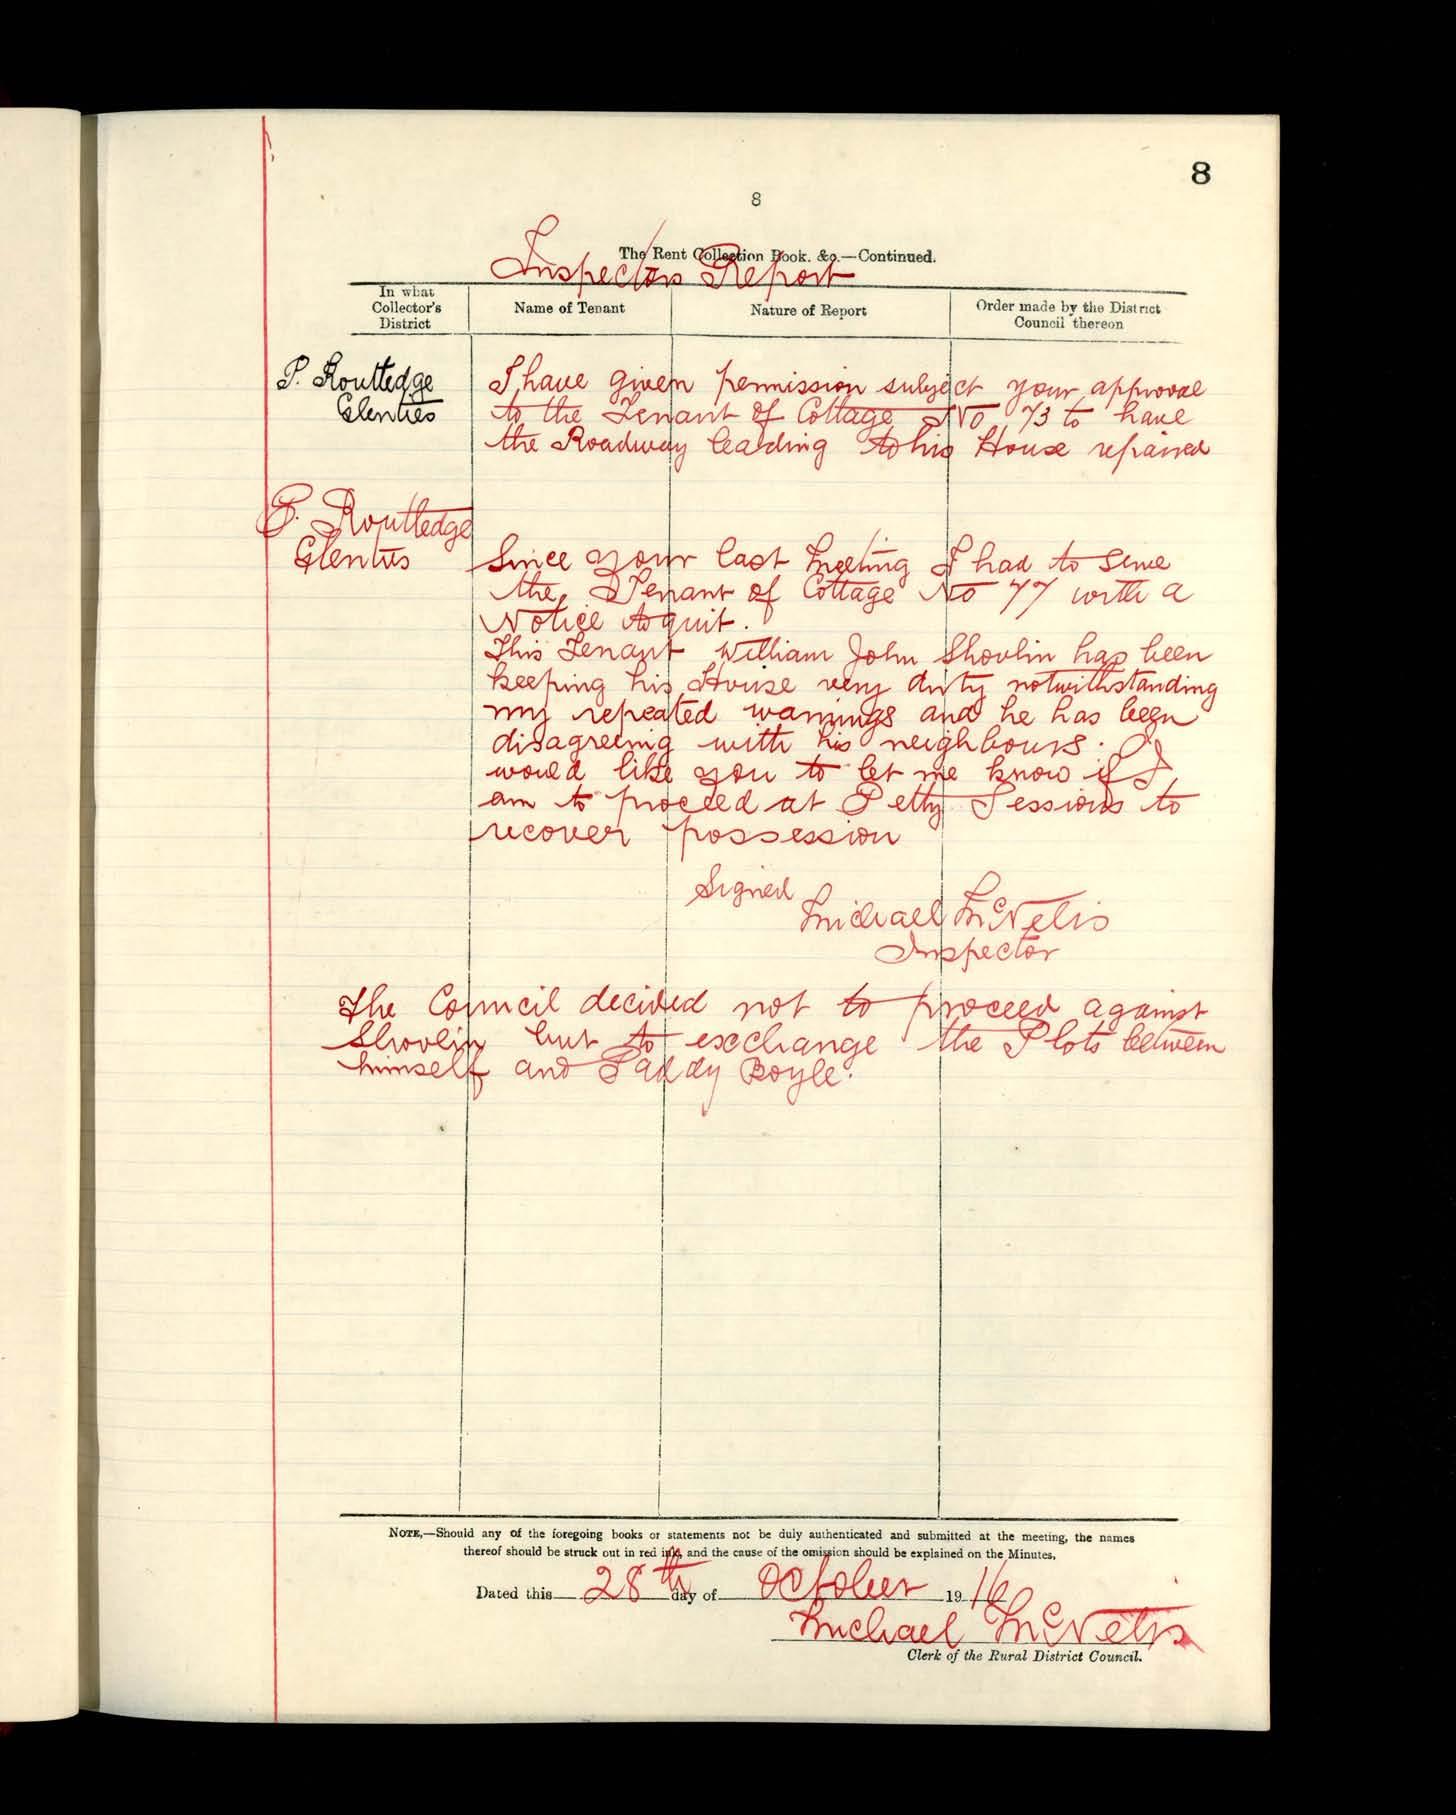 8
8
The Rent Collection Book. &c.—Continued.
Inspectors Report
In what
Collector's
District
Name of Tenant
Nature of Report
Order made by the District
Council thereon
P. Routledge
Glenties
I have given permission subject your approval
to the Tenant of Cottage No 73 to have
the Roadway leading to his House repaired
P. Routledge
Glenties
Since your last Meeting I had to serve
the Tenant of Cottage No 77 with a
Notice to quit.
This Tenant William John Shovlin has been
keeping his House very dirty notwithstanding
my repeated warnings and he has been
disagreeing with his neighbours. I
would like you to let me know if I
am to proceed at Petty Sessions to
recover possession
Signed
Michael McNelis
Inspector
The Council decided not to proceed against
Shovlin but to exchange the Plots between
himself and Paddy Boyle.
NOTE,—Should any of the foregoing books or statements not be duly authenticated and submitted at the meeting, the names
thereof should be struck out in red ink, and the cause of the omission should be explained on the Minutes.
Dated this 28th day of October 1916
Michael McNelis
Clerk of the Rural District Council.